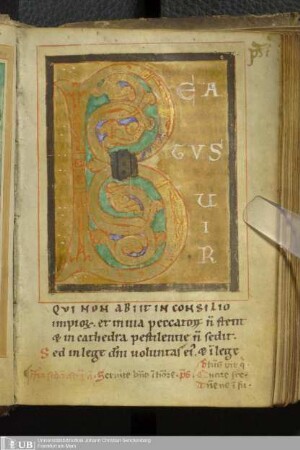 BEA
TVS
V
I
R
QVI NON ABIIT IN CONSILIO
impior. et in uia peccatoꝝ n̄ stetit
& in cathedra pestilentie n̄ sedit.
Sed in lege dn̄i uoluntas ei'. & ī lege
UB Universitätsbibliothek Johann Christian Senckenberg
Frankfurt am Main